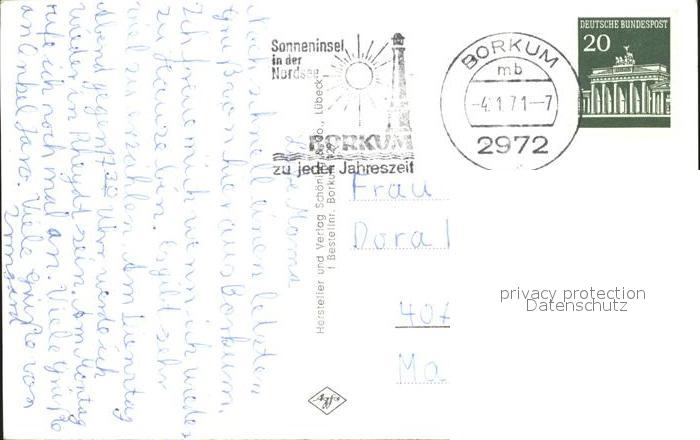 Sonneninsel
in der
Nordsee
BORKUM
zu jeder Jahreszeit
BORKUM
mb
-4.1.71-7
2972
DEUTSCHE BUNDESPOST
20
Liebe Mama
Noch schnell einen letzten
Gruß von hier aus Borkum.
Ich freue mich wenn ich wieder
zu Hause bin. Es gibt sehr
viel zu erzählen. Am Dienstag
Abend gegen 7 30 Uhr werde ich
wieder in Rheydt sein. Am Montag
rufe ich noch mal an. Viele Grüße
an Onkel Viele Grüße von
Irmgard
Hersteller und Verlag Schöning & Co., Lübeck
Bestellnr. Borku
Frau
Dora
407
Mo
privacy protection
Datenschutz